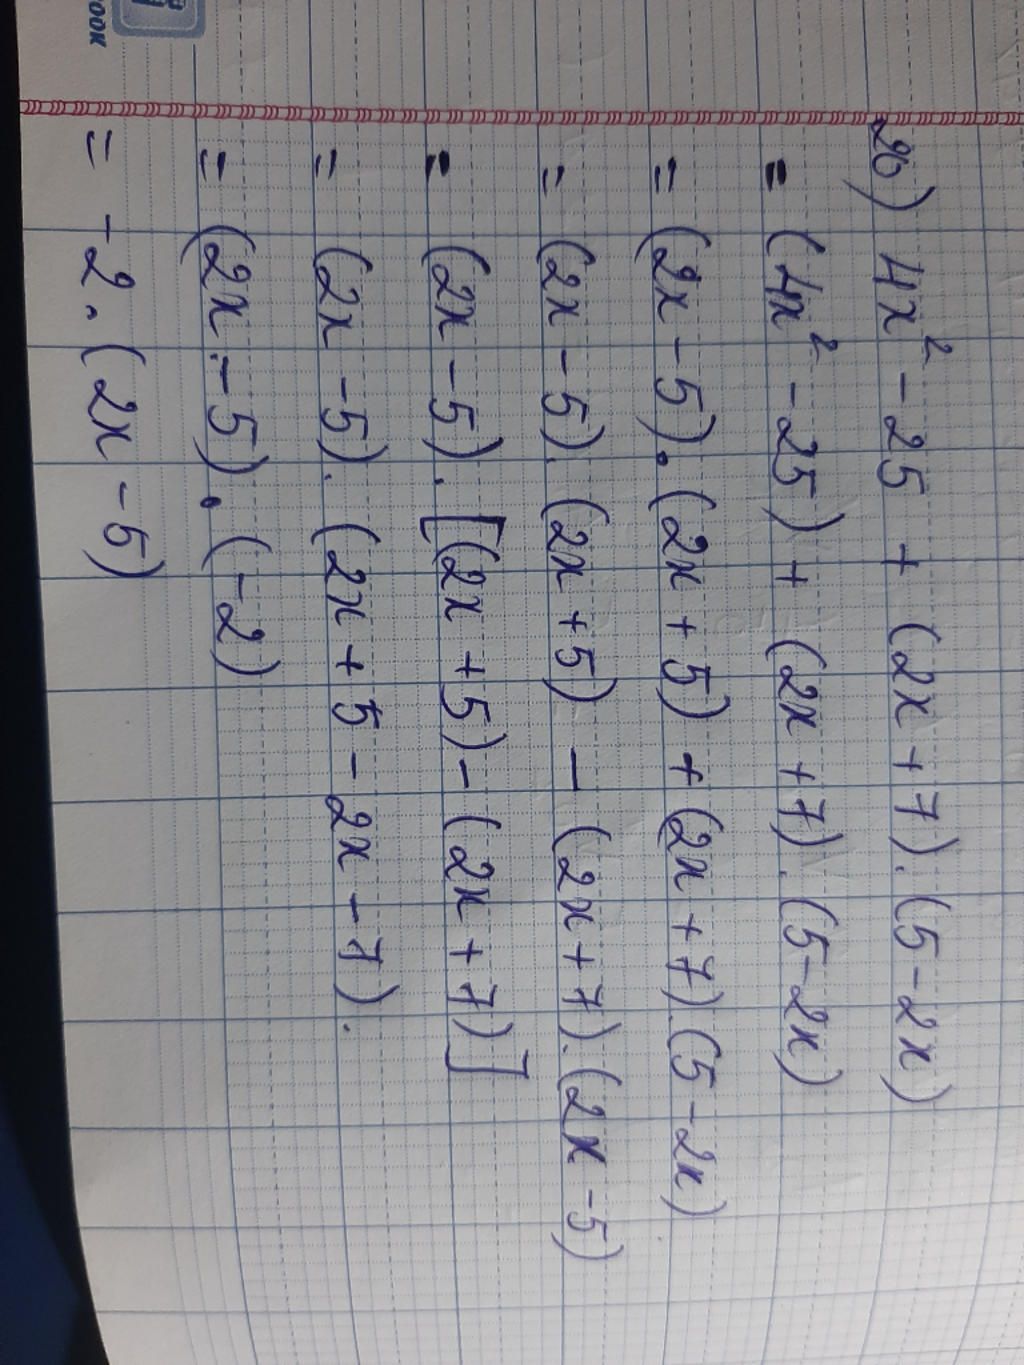 26) 4x² - 25 + (2x + 7).(5 - 2x)
= (4x² - 25) + (2x + 7).(5 - 2x)
= (2x - 5).(2x + 5) + (2x + 7).(5 - 2x)
= (2x - 5).(2x + 5) - (2x + 7).(2x - 5)
= (2x - 5).[(2x + 5) - (2x + 7)]
= (2x - 5).(2x + 5 - 2x - 7).
= (2x - 5).(-2)
= -2.(2x - 5)